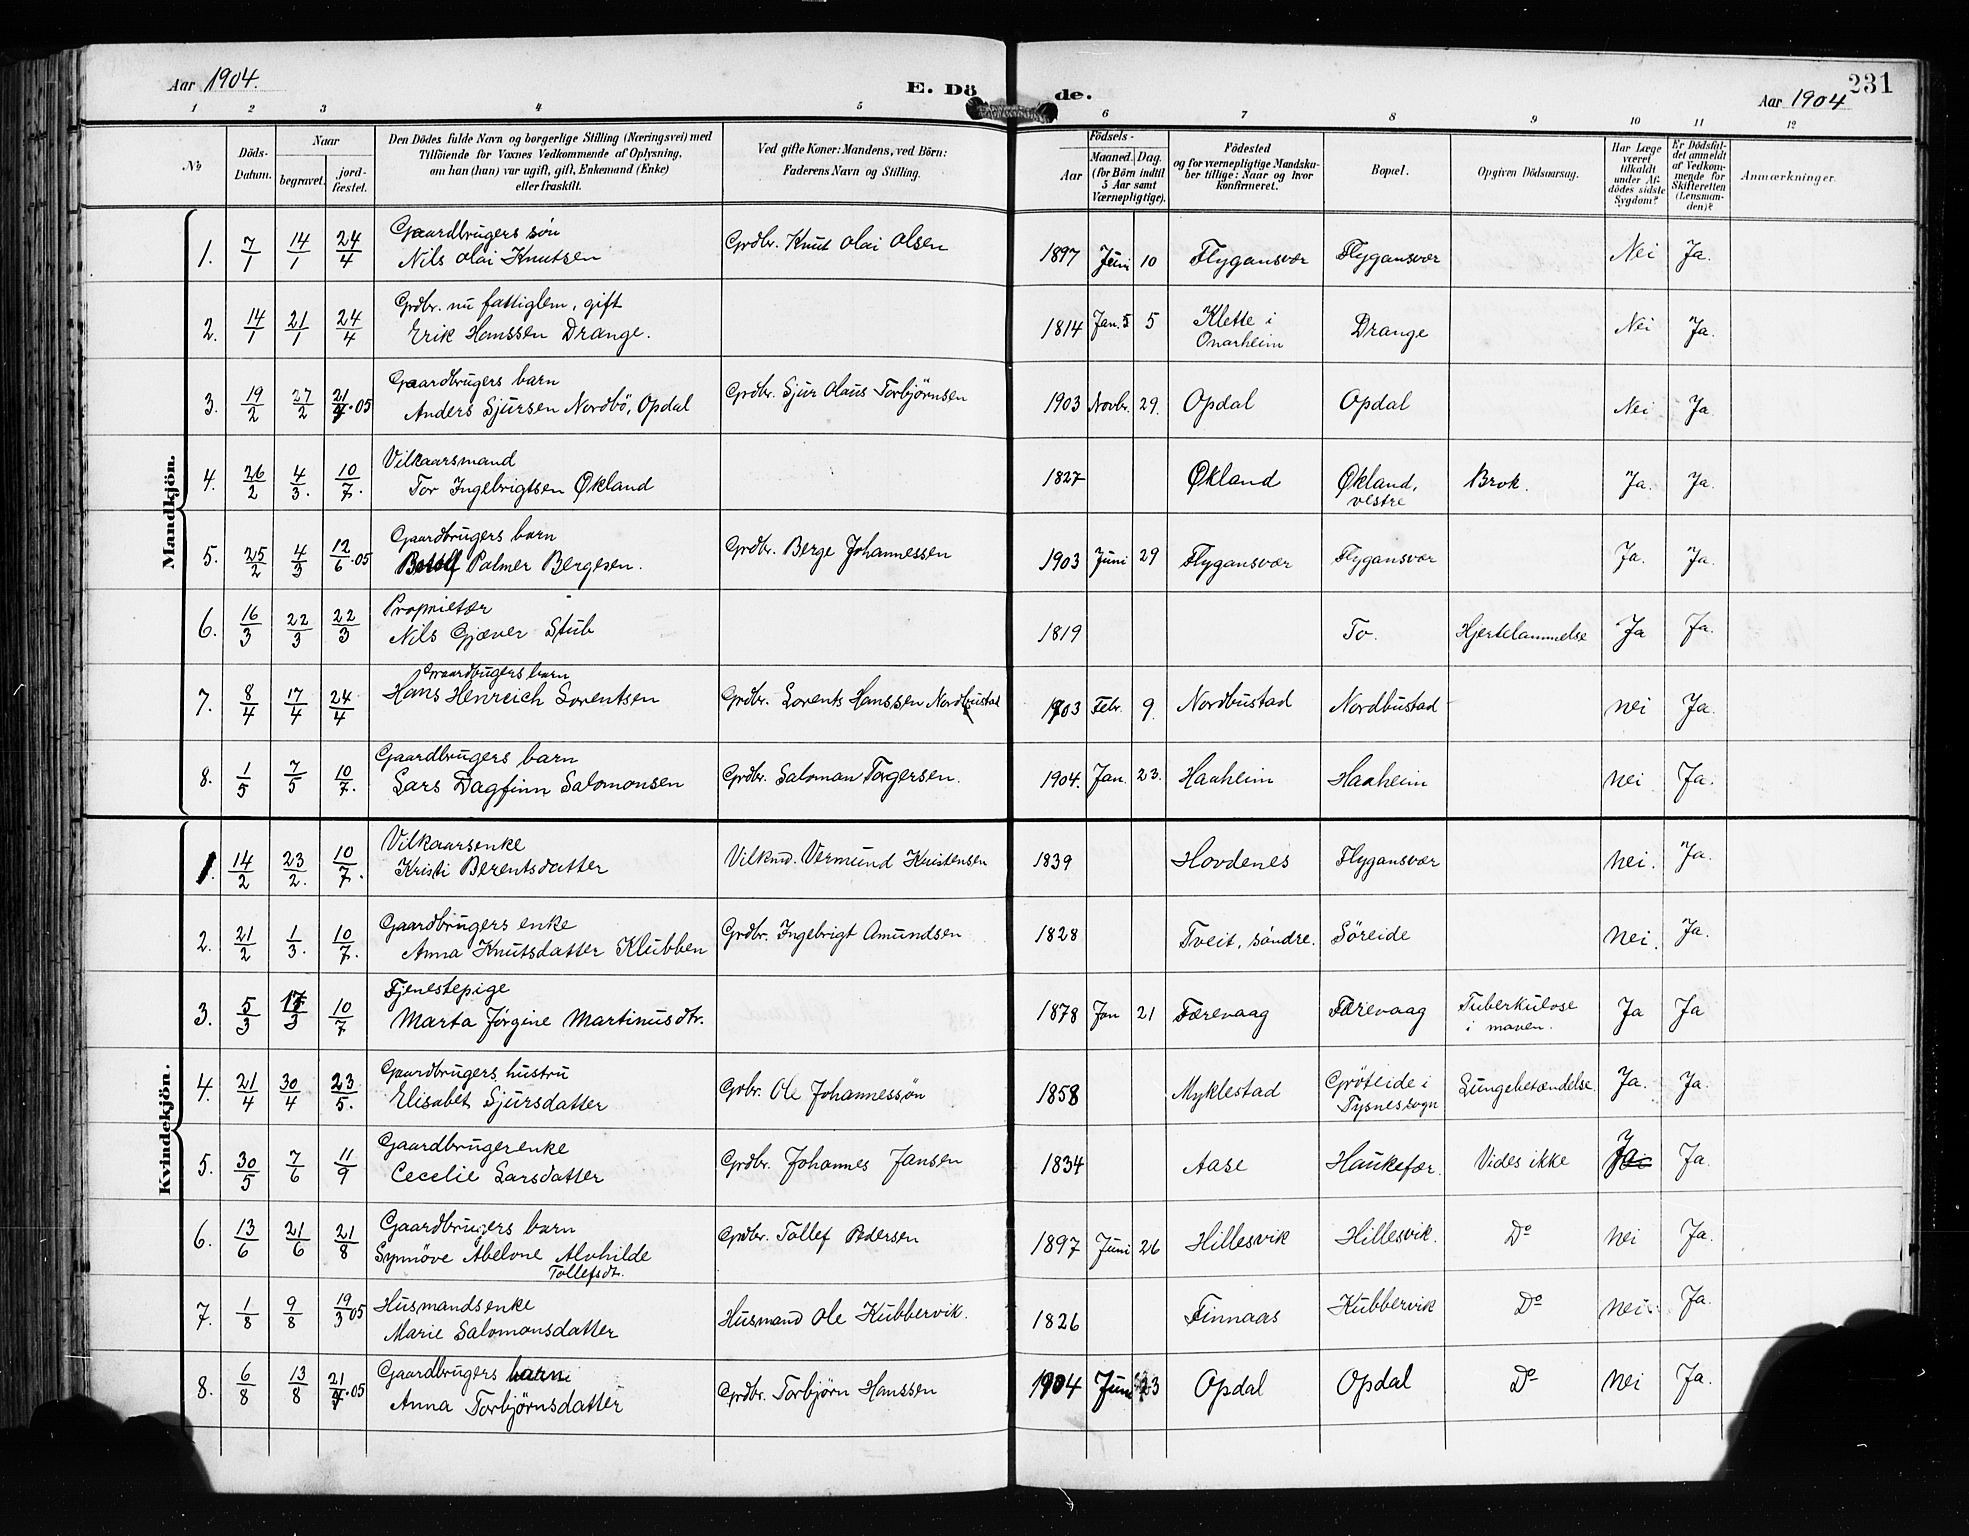 Aar 1904.
E. Dö
de.
231
Aar 1904
1 2 3 4 5 6 7 8 9 10 11 12
No
Döds-Datum.
Naar
begravet.
jord-fæstet.
Den Dödes fulde Navn og borgerlige Stilling (Næringsvei) med
Tilföiende for Voxnes Vedkommende af Oplysning,
om han (hun) var ugift, gift, Enkemand (Enke)
eller fraskilt.
Ved gifte Koner: Mandens, ved Börn:
Faderens Navn og Stilling.
Födsels-
Aar
Maaned. Dag.
(for Börn indtil
5 Aar samt
Værnepligtige).
Födested
og for værnepligtige Mandska-
ber tillige: Naar og hvor
konfirmeret.
Bopæl.
Opgiven Dödsaarsag.
Har Læge
været
tilkaldt
under Af-
dödes sidste
Sygdom?
Er Dödsfal-
det anmeldt
af Vedkom-
mende for
Skifteretten
(Lensman-
den)?
Anmærkninger.
Mandkjön.
Gaardbrugers søn
1. 7/1 14/1 24/4 Nils Olai Knutsen Grdbr. Knut Olai Olsen 1897 Juni 10 Flygansvær Flygansvær Nei Ja.
Grdbr. nu fattiglem, gift
2. 14/1 21/1 24/4 Erik Hanssen Drange. 1814 Jan. 5 5 Klette i Drange Nei Ja.
Onarheim
Gaardbrugers barn
3. 19/2 27/2 21/4.05 Anders Sjursen Nordbö, Opdal Grdbr. Sjur Olaus Torbjørnsen 1903 Novbr. 29. Opdal Opdal Nei Ja.
Vilkaarsmand
4. 26/2 4/3. 10/7. Tor Ingebrigtsen Økland 1827 Økland Økland, Brok. Ja. Ja.
vestre
Gaardbrugers barn
5. 25/2 4/3 12/6.05 Palmer Bergesen. Grdbr. Berge Johannessen 1903 Juni 29 Flygansvær Flygansvær Ja. Ja.
Proprietær
6. 16/3 22/3 22/3 Nils Gjæver Stub 1819 To. Hjertelammelse Ja Ja.
Gaardbrugers barn
7. 8/4 17/4 24/4 Hans Henreich Lorentsen Grdbr. Lorents Hanssen Nordbustad 1903 Febr. 9. Nordbustad Nordbustad nei Ja.
Gaardbrugers barn
8. 1/5 7/5 10/7. Lars Dagfinn Salomonsen Grdbr. Saloman Torgersen. 1904. Jan. 23. Haaheim Haaheim nei Ja.
Kvindekjön.
Vilkaarsenke
1. 14/2 23/2. 10/7. Kristi Berentsdatter Vilkmd. Vermund Kristensen 1839 Hovdenes Flygansvær nei. Ja.
Gaardbrugers enke
2. 21/2 1/3. 10/7. Anna Knutsdatter Klubben Grdbr. Ingebrigt Amundsen 1828 Tveit, söndre. Söreide nei. Ja.
Tjenestepige
3. 5/3 17/3 10/7 Marta Jørgine Martinusdtr. 1878 Jan 21 Færevaag Færevaag Tuberkulose Ja Ja
i maven.
Gaardbrugers hustru
4. 21/4 30/4 23/5. Elisabet Sjursdatter Grbr. Ole Johannessøn 1858 Myklestad Gröteide i Lungebetændelse. Ja. Ja.
Tysnes sogn
Gaardbrugerenke
5. 30/5 7/6 11/9 Cecelie Larsdatter Grdbr. Johannes Jansen 1834 Aase Haukefær. Vides ikke Ja Ja.
Gaardbrugers barn
6. 13/6 21/6 21/8 Synnöve Abelone Alvhilde Grdbr. Tollef Pedersen 1897 Juni 26 Hillesvik Hillesvik. Do nei Ja.
Tollefsdt.
Husmandsenke
7. 1/8 9/8 19/3 05 Marie Salomonsdatter Husmand Ole Kubbervik. 1826 Finnaas Kubbervik Do nei. Ja.
Gaardbrugers barn
8. 6/8 13/8 21/4.05 Anna Torbjörnsdatter Grdbr. Torbjørn Hanssen 1904 Juni 23 Opdal Opdal Do nei Ja.